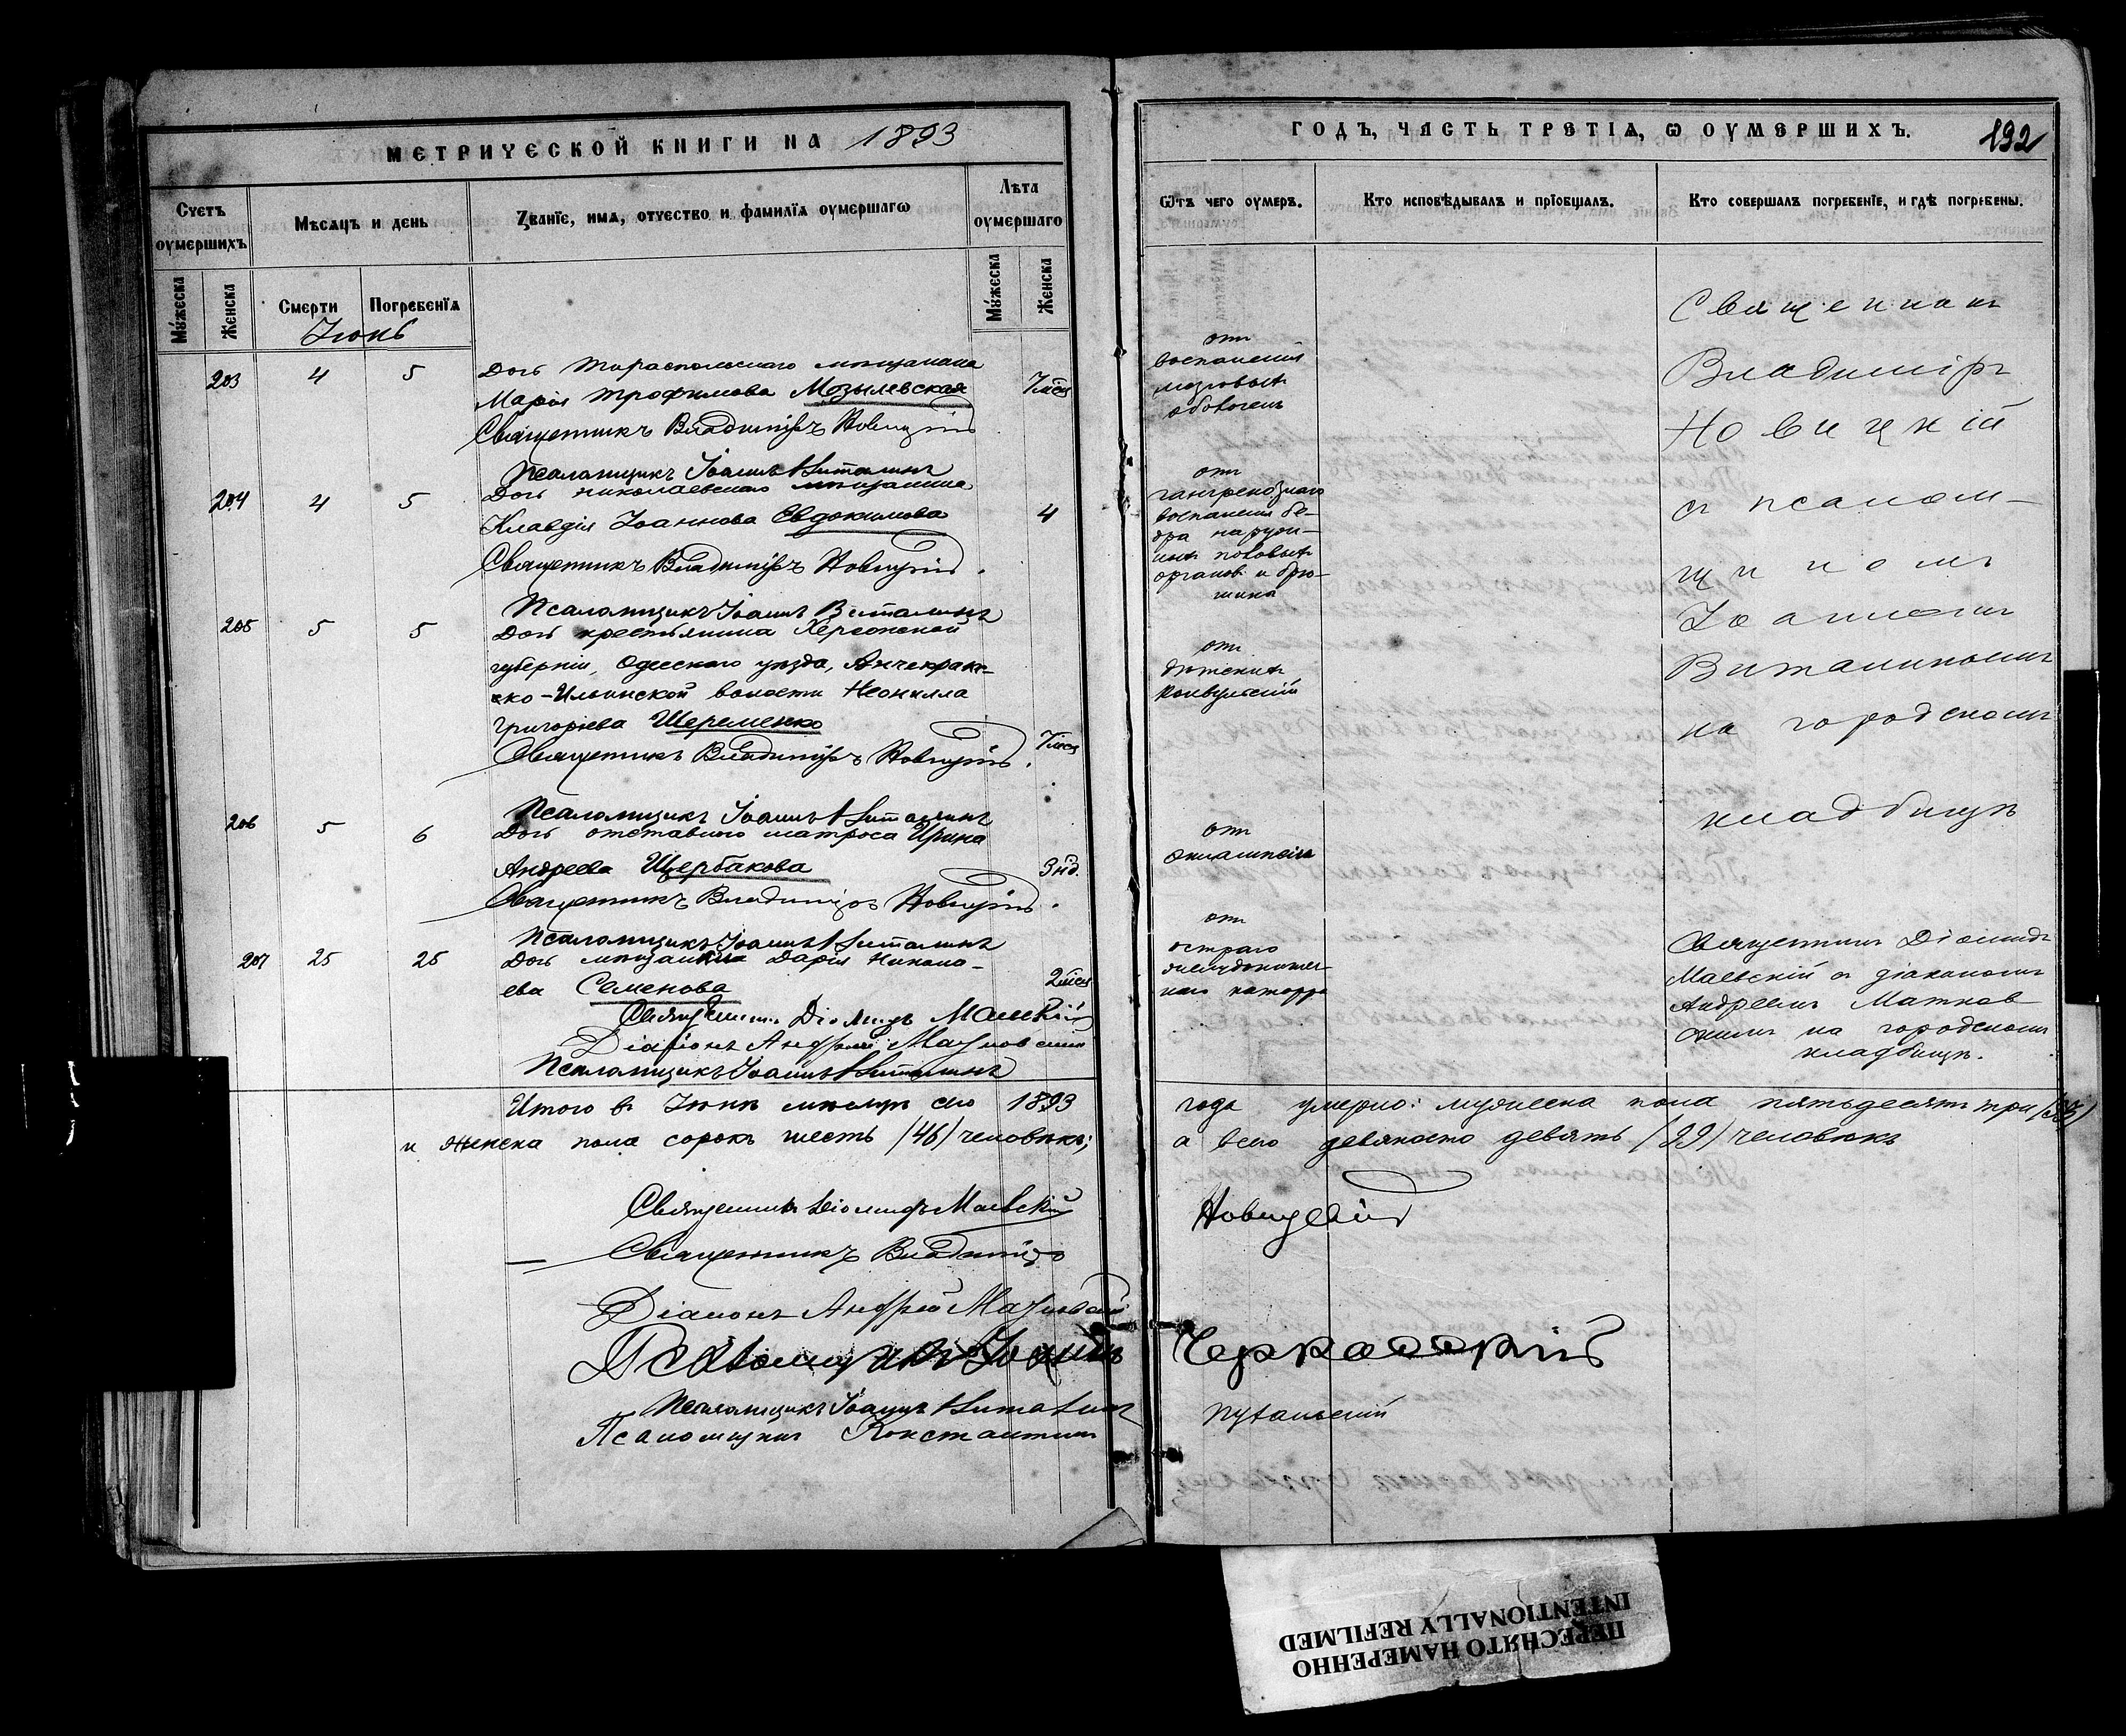 МЕТРИЧЕСКОЙ КНИГИ НА 1893
Счетъ оумершихъ
Мѣсяцъ и день
Званїе, имѧ, отчество и фамилїѧ оумершагѡ
Лѣта оумершаго
Мꙋжеска
Женска
Смерти
Погребенїѧ
Мꙋжеска
Женска
Іюнь
203 4 5 Дочь тираспольскаго мѣщанина
Марія Трофимова Мозылевская 7 мѣс
Священникъ Владиміръ Новицкій
Псаломщикъ Іоаннъ Виталинъ
204 4 5 Дочь николаевскаго мѣщанина
Клавдія Іоаннова Евдокимова 4
Священникъ Владиміръ Новицкій
Псаломщикъ Іоаннъ Виталинъ
205 5 5 Дочь крестьянина Херсонской
губерніи, Одесскаго уѣзда, Анчекрак-
ско-Ильинской волости Неонилла
Григорьева Шеременко
Священникъ Владиміръ Новицкій 7 мѣс
Псаломщикъ Іоаннъ Виталинъ
206 5 6 Дочь отставного матроса Ирина
Андреева Щербакова 3 нд.
Священникъ Владиміръ Новицкій
Псаломщикъ Іоаннъ Виталинъ
207 25 25 Дочь мѣщанина Дарія Никола-
ева Семенова 2 мѣс
Священникъ Діомидъ Маевскій
Діаконъ Андрей
Псаломщикъ Іоаннъ Виталинъ
Итого въ Іюнѣ мѣсяцѣ сего 1893
и женска пола сорокъ шесть /46/ человѣкъ;
Священникъ Діомидъ Маевскій
Священникъ Владиміръ
Діаконъ Андрей
Псаломщикъ Іоаннъ
Псаломщикъ Іоаннъ Виталинъ
Псаломщикъ Константинъ
ГОДЪ, ЧАСТЬ ТРЕТІѦ, Ѡ ОУМЕРШИХЪ.
192
Ѿтъ чего оумеръ.
Кто исповѣдывалъ и прїобщалъ.
Кто совершалъ погребенїе, и гдѣ погребены.
отъ
воспаленія
мозговыхъ
оболочекъ
отъ
гангренознаго
воспаленія бе-
дра наруж-
ныхъ половыхъ
органовъ и брю-
шина
отъ
дѣтскихъ
конвульсій
отъ
отъ
остраго
желудочно-киш-
наго катарра
Священникъ
Владиміръ
Новицкій
съ псалом-
щикомъ
Іоанномъ
Виталинымъ
на городскомъ
кладбищѣ
Священникъ Діомидъ
Маевскій съ діакономъ
Андреемъ
скимъ на городскомъ
кладбищѣ.
года умерло: мужеска пола пятьдесятъ три /53/
а всего девяносто девять /99/ человѣкъ
Новицкій
Черкавскій
ПЕРЕСНЯТО НАМЕРЕННО
INTENTIONALLY REFILMED